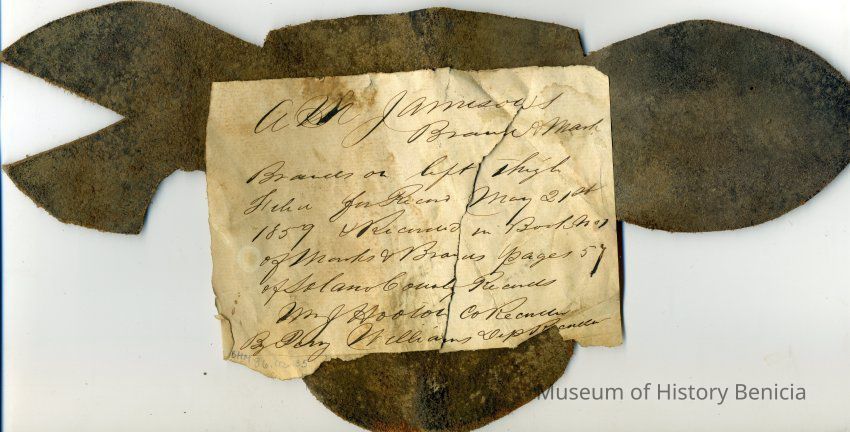 Jameson's
Brand & Mark
Brands on left thigh
Filed for Record May 21st
1859 & Recorded in Book No 1
of Marks & Brands pages 57
of Solano County Records
Wm J Hooton Co Recorder
By Perry Williams Dep Recorder
Museum of History Benicia